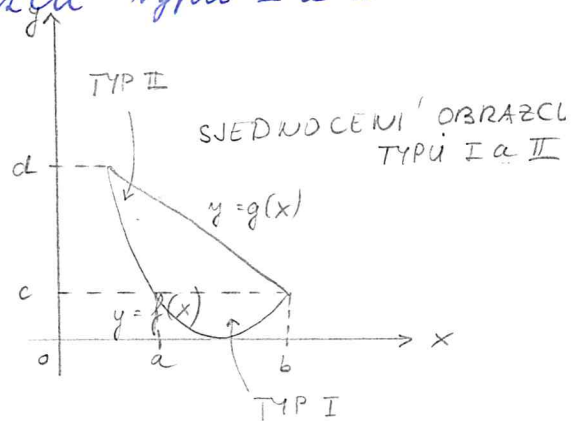 typů I a
y
TYP II
SJEDNOCENÍ OBRAZCŮ
TYPŮ I a II
d
y = g(x)
c
y = f(x)
0
a
b
x
TYP I